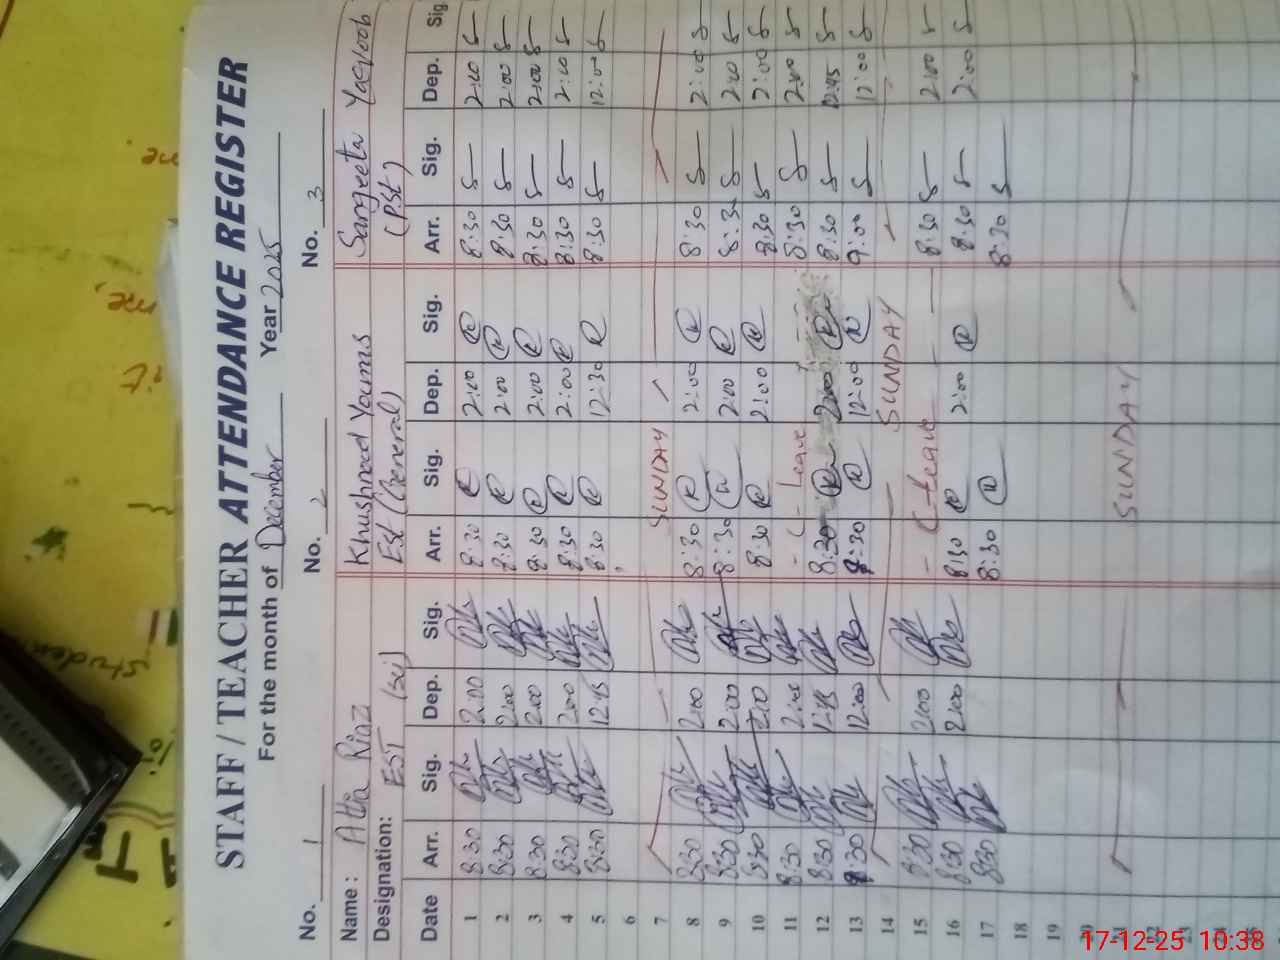 STAFF / TEACHER ATTENDANCE REGISTER
For the month of December Year 2025
No. 1 No. 2 No. 3
Name: Attia Riaz Khushnood Younis Sangeeta Yaqoob
Designation: EST (Sci) Est (General) (PST)
Date Arr. Sig. Dep. Sig. Arr. Sig. Dep. Sig. Arr. Sig. Dep. Sig.
1 8:30 2:00 8:30 2:00 8:30 2:00
2 8:30 2:00 8:30 2:00 8:30 2:00
3 8:30 2:00 8:30 2:00 8:30 2:00
4 8:30 2:00 8:30 2:00 8:30 2:00
5 8:30 12:45 8:30 12:30 8:30 12:00
6
7 SUNDAY
8 8:30 2:00 8:30 2:00 8:30 2:00
9 8:30 2:00 8:30 2:00 8:30 2:00
10 8:30 2:00 8:30 2:00 8:30 2:00
11 8:30 2:00 Leave 8:30 2:00
12 8:30 8:30 8:30 12:45
13 8:30 12:00 8:30 12:00 9:00 12:00
14 SUNDAY
15 8:30 2:00 C-Leave 8:30 2:00
16 8:30 2:00 8:30 2:00 8:30 2:00
17 8:30 8:30 8:30
18
19
20
21 SUNDAY
22
23
24
25
17-12-25 10:38